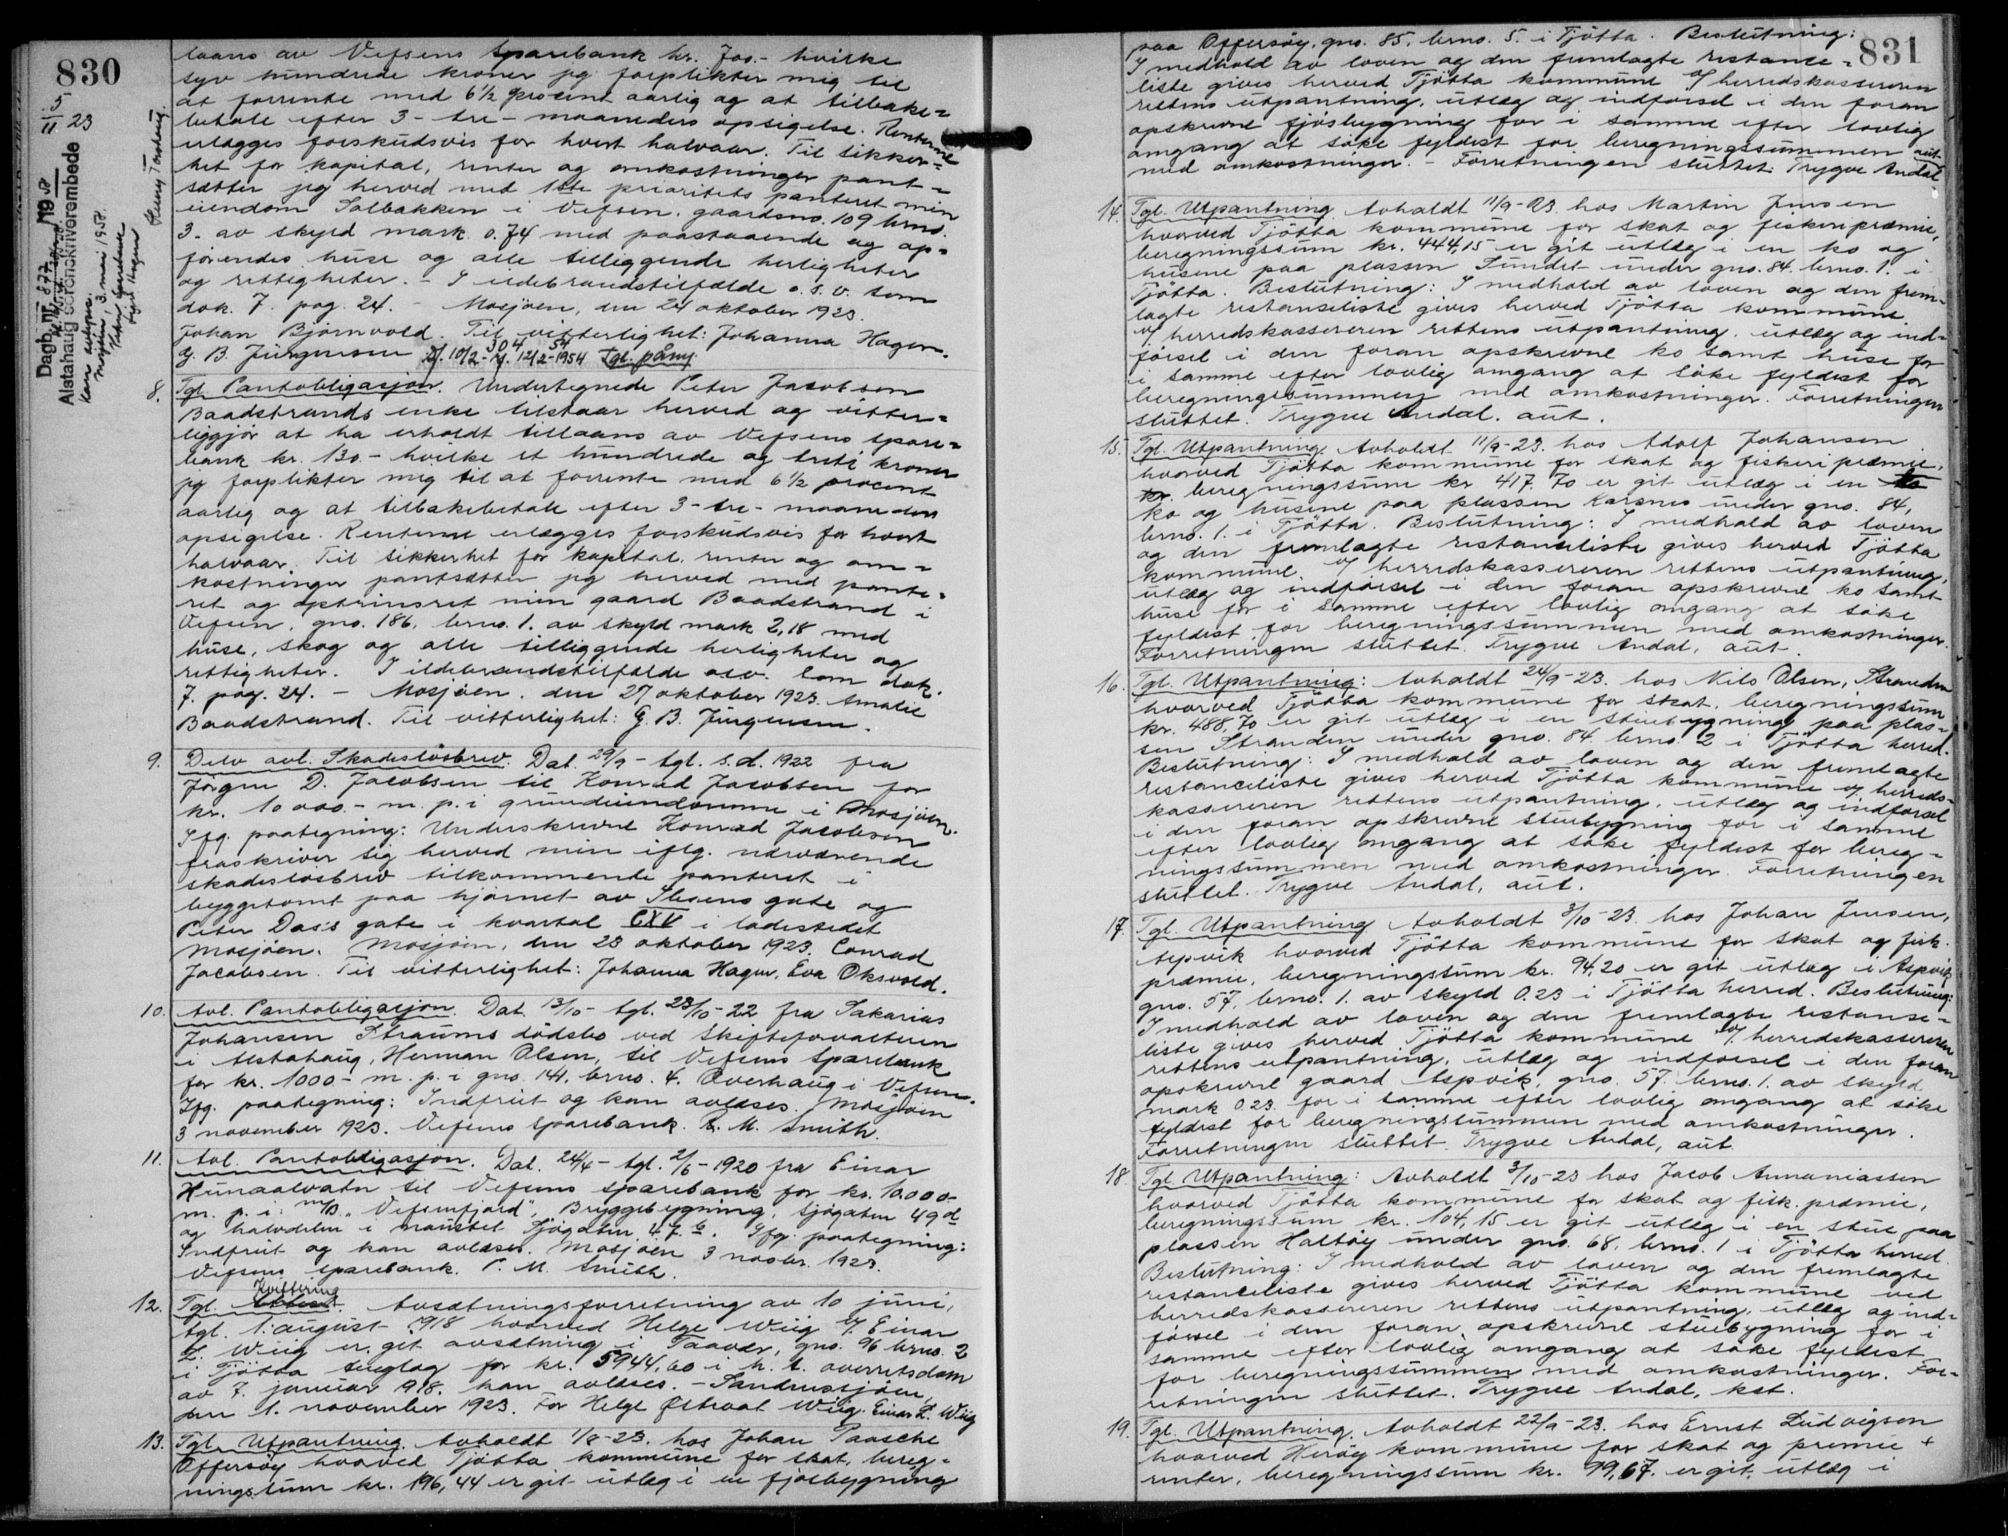 830
5/11 23
Alstahaug sorenskriverembede
Kan avlyses.
Mosjøen, 3. mai 1957.
laans av Vefsens Sparebank kr. 700.- hvilke
syv hundrede kroner jeg forplikter mig til
at forrente med 6½ procent aarlig og at tilbake=
betale efter 3 - tre - maaneders opsigelse. Renterne
erlægges forskudsvis for hvert halvaar. Til sikker=
het for kapital, renter og omkostninger pant=
sætter jeg herved med 1ste prioritets panteret min
eiendom Solbakken i Vefsen, gaardsno. 109 brno.
3. av skyld mark 0.74 med paastaaende og op=
førendes huse og alle tilleggende herligheter
og rettigheter. - I ildebrandstilfælde o.s.v. som
dok. 7. pag. 24. - Mosjøen, den 24 oktober 1923.
Johan Bjørnvold. Til vitterlighet: Johanna Hagen.
G. B. Jürgensen 10/2- 12/2-1954 tgl. påny
8. Tgl. Pantobligasjon. Undertegnede Peter Jacobsen
Baadstrands enke tilstaar herved og vitter=
liggjør at ha erholdt tillaans av Vefsens Spare=
bank kr. 130.- hvilke et hundrede og treti kroner
jeg forplikter mig til at forrente med 6½ procent
aarlig og at tilbakebetale efter 3 - tre - maaneders
opsigelse. Renterne erlægges forskudsvis for hvert
halvaar. Til sikkerhet for kapital, renter og om=
kostninger pantsætter jeg herved med pante=
ret og optrinsret min gaard Baadstrand i
Vefsen, gno. 186, brno. 1. av skyld mark 2,18 med
huse, skog og alle tilliggende herligheter og
rettigheter. I ildebrandstilfælde osv. som dok.
7. pag. 24. - Mosjøen, den 27 oktober 1923. Amalie
Baadstrand. Til vitterlighet: G. B. Jürgensen.
9. Delv avl. Skadesløsbrev. Dat. 29/9 - tgl. s.d. 1922 fra
Jørgen D. Jacobsen til Konrad Jacobsen for
kr. 10 000.- m. p. i grundeiendomme i Mosjøen.
Ifg. paategning: Underskrevne Konrad Jacobsen
fraskriver sig herved min iflg. nærværende
skadesløsbrev tilkommende panteret i
byggetomt paa hjørnet av Ibsens gate og
Peter Dass's gate i kvartal CXV i ladestedet
Mosjøen. Mosjøen, den 23 oktober 1923. Conrad
Jacobsen. Til vitterlighet: Johanna Hagen, Eva Oksvold.
10. Avl. Pantobligasjon. Dat. 13/10 - tgl. 23/10-22 fra Sakarias
Johansen Straums dødsbo ved Skifteforvalteren
i Alstahaug, Herman Olsen, til Vefsens Sparebank
for kr. 1000.- m. p. i gno. 141. brno. 4. Øverhaug i Vefsen.
Ifg. paategning: Indfriet og kan avlæses. Mosjøen
3 november 1923. Vefsens Sparebank. P. M. Smith.
11. Avl. Pantobligasjon. Dat. 24/4 - tgl. 2/6-1920 fra Einar
Hunaalvatn til Vefsens Sparebank for kr. 10.000.-
m. p. i: m/b "Vefsenfjord", Bryggebygning, Sjøgaten 49 d
og halvdelen i naustet Sjøgaten 47 c. Ifg. paategning:
Indfriet og kan avlæses. Mosjøen 3 novbr. 1923.
Vefsens Sparebank. P. M. Smith.
12. Tgl. Kvittering. Avsætningsforretning av 10 juni,
tgl. 1. august 1918 hvorved Helge Wiig v/ Einar
L. Wiig er git avsætning i Taavær, gno. 96 brno. 2
i Tjøtta tinglag for kr. 5944,60 i h. t. overretsdom
av 7. januar 1918. kan avlæses. - Sandnessjøen,
den 1. november 1923. For Helge Østvat Wiig. Einar L. Wiig
13. Tgl. Utpantning. Avholdt 1/8-23. hos Johan Paasche
Offersøy hvorved Tjøtta kommune for skat, bereg=
ningssum kr. 196,44 er git utlæg i en fjøsbygning
831
paa Offersøy, gno. 85. brno. 5. i Tjøtta. Beslutning:
I medhold av loven og den fremlagte restanse=
liste gives herved Tjøtta kommune v/ herredskassereren
rettens utpantning, utlæg og indførsel i den foran
opskrevne fjøsbygning for i samme efter lovlig
omgang at søke fyldest for beregningssummen
med omkostninger. - Forretningen sluttet. Trygve Andal aut.
14. Tgl. Utpantning. Avholdt 11/9-23. hos Martin Jensen
hvorved Tjøtta kommune for skat og fiskeripræmie,
beregningssum kr. 444,15 er git utlæg i en ko og
husene paa plassen Sundet under gno. 84. brno. 1. i
Tjøtta. Beslutning: I medhold av loven og den frem=
lagte restanseliste gives herved Tjøtta kommune
v/ herredskassereren rettens utpantning, utlæg og ind=
førsel i den foran opskrevne ko samt huse for
i samme efter lovlig omgang at søke fyldest for
beregningssummen med omkostninger. Forretningen
sluttet. Trygve Andal. aut.
15. Tgl. Utpantning. Avholdt 11/9-23. hos Adolf Johansen
hvorved Tjøtta kommune for skat og fiskeripræmie,
kr. beregningssum kr 417.70 er git utlæg i en ko
ko og husene paa plassen Karsnes under gno. 84,
brno. 1. i Tjøtta. Beslutning: I medhold av loven
og den fremlagte restanseliste gives herved Tjøtta
kommune v/ herredskassereren rettens utpantning,
utlæg og indførsel i den foran opskrevne ko samt
huse for i samme efter lovlig omgang at søke
fyldest for beregningssummen med omkostninger.
Forretningen sluttet. Trygve Andal, aut.
16. Tgl. Utpantning: Avholdt 24/9-23. hos Nils Olsen, Stranden
hvorved Tjøtta kommune for skat, beregningssum
kr. 488,70 er git utlæg i en stuebygning paa plas=
sen Stranden under gno. 84 brno. 2 i Tjøtta herred.
Beslutning: I medhold av loven og den fremlagte
restanceliste gives herved Tjøtta kommune v/ herreds=
kassereren rettens utpantning, utlæg og indførsel
i den foran opskrevne stuebygning for i samme
efter lovlig omgang at søke fyldest for bereg=
ningssummen med omkostninger. Forretningen
sluttet. Trygve Andal, aut.
17. Tgl. Utpantning Avholdt 3/10-23. hos Johan Jensen,
Aspvik hvorved Tjøtta kommune for skat og fisk.
præmie, beregningssum kr. 94,20 er git utlæg i Aspvik
gno. 57. brno. 1. av skyld 0.23 i Tjøtta herred. Beslutning:
I medhold av loven og den fremlagte restanse=
liste gives herved Tjøtta kommune v/ herredskassereren
rettens utpantning, utlæg og indførsel i den foran
opskrevne gaard Aspvik, gno. 57. brno. 1. av skyld
mark 0.23. for i samme efter lovlig omgang at søke
fyldest for beregningssummen med omkostninger.
Forretningen sluttet. Trygve Andal, aut.
18. Tgl. Utpantning: Avholdt 3/10-23 hos Jacob Annaniassen
hvorved Tjøtta kommune for skat og fisk. præmie,
beregningssum kr. 104,15 er git utlæg i en stue paa
plassen Haltøy under gno. 68. brno. 1 i Tjøtta herred.
Beslutning: I medhold av loven og den fremlagte
restanceliste gives herved Tjøtta kommune ved
herredskassereren rettens utpantning, utlæg og ind=
førsel i den foran opskrevne stuebygning for i
samme efter lovlig omgang at søke fyldest
for beregningssummen med omkostninger. For=
retningen sluttet. Trygve Andal, kst.
19. Tgl. Utpantning. Avholdt 22/9-23. hos Ernst Ludvigsen
hvorved Herøy kommune for skat og premie +
renter, beregningssum kr. 99,67. er git utlæg i